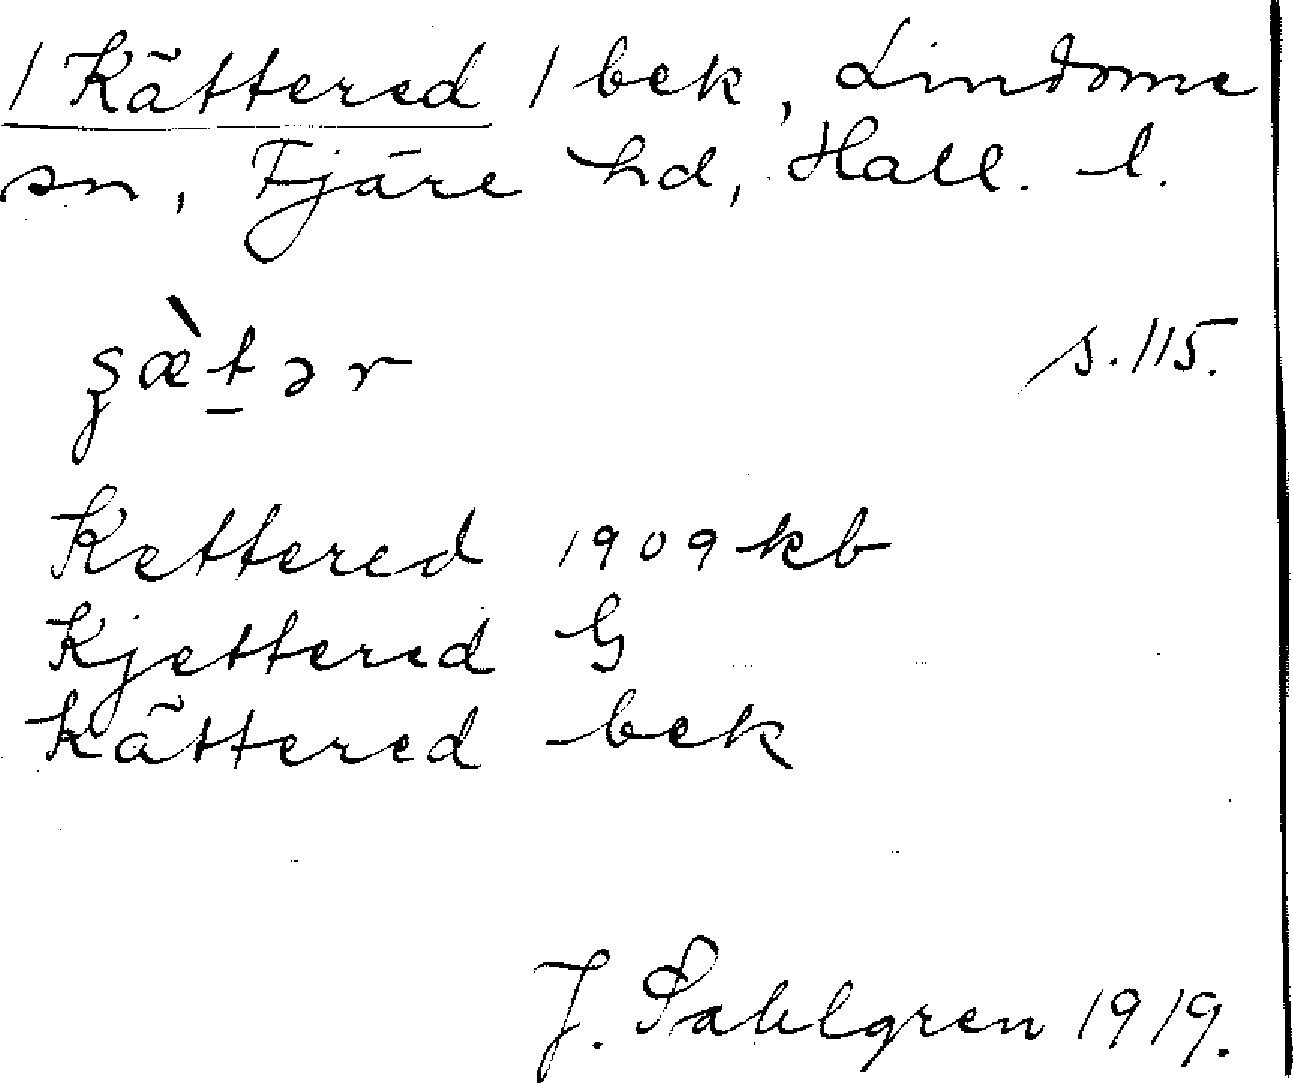 / Kättered / bek, Lindome
sn, Fjäre hd, Hall. l.
ʂæ̀t̲ər s. 115.
Kettered 1909 kb
Kjettered G
Kättered bek
J. Sahlgren 1919.